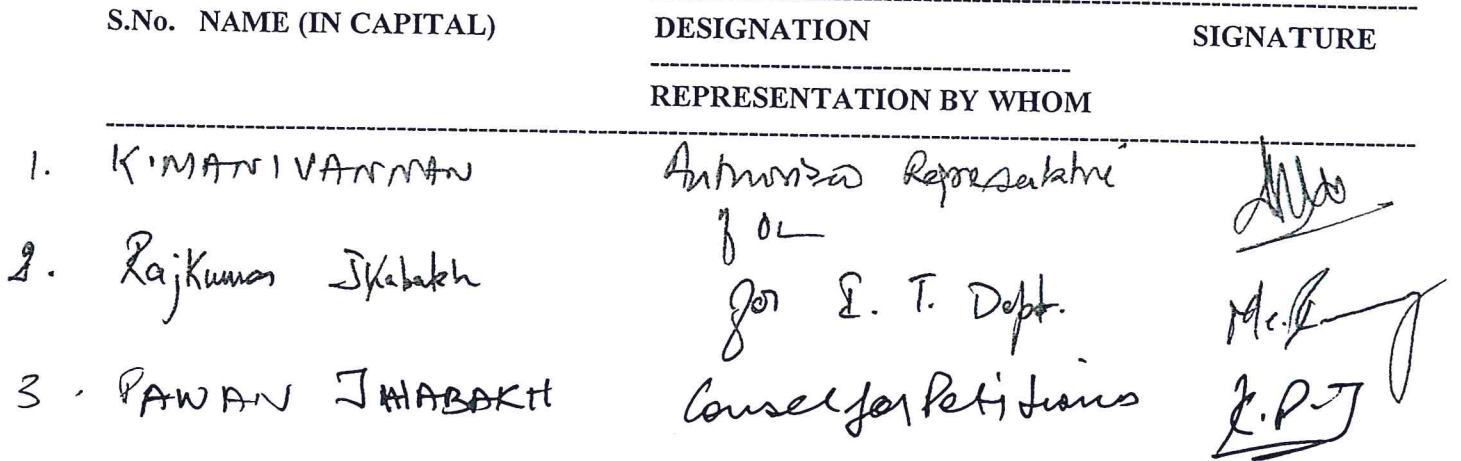 S.No. NAME (IN CAPITAL) DESIGNATION SIGNATURE
REPRESENTATION BY WHOM
1. K. MANIVANNAN Authorised Representative
for OL
2. Rajkumar Jhabakh for I. T. Dept.
3. PAWAN JHABAKH Counsel for Petitioner K.P.J